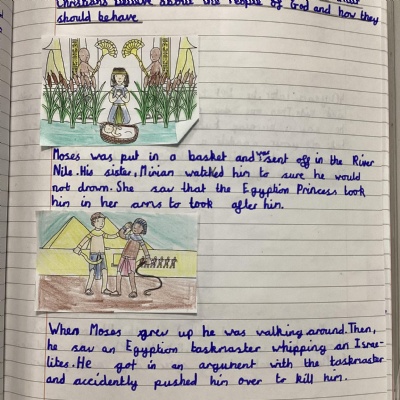 Christians believe about the People of God and how they
should behave
Moses was put in a basket and was sent off in the River
Nile. His sister, Mirian watched him to sure he would
not drown. She saw that the Egyption Princess took
him in her arms to took after him.
When Moses grew up he was walking around. Then,
he saw an Egyption taskmaster whipping an Israe-
lites. He got in an argument with the taskmaster
and accidently pushed him over to kill him.